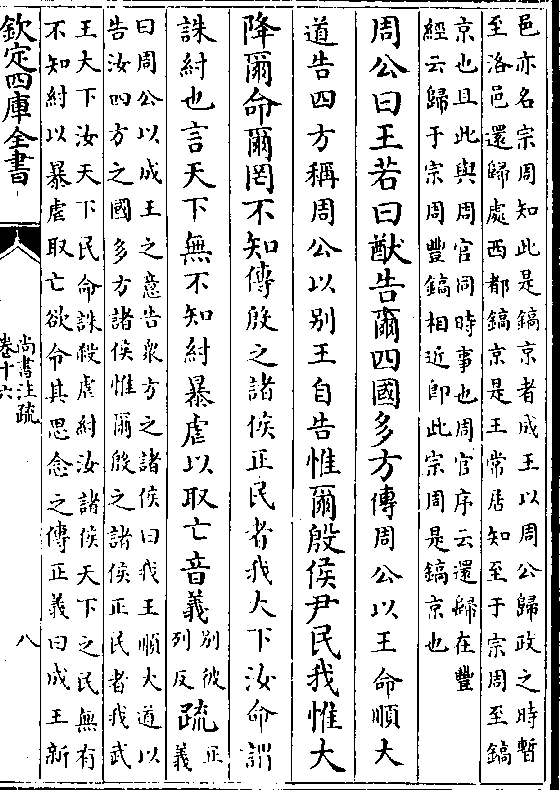 邑亦名宗周知此是鎬京者成王以周公歸政之時暫
至洛邑還歸處西都鎬京是王常居知至于宗周至鎬
京也且此與周官同時事也周官序云還歸在豐
經云歸于宗周豐鎬相近即此宗周是鎬京也
周公曰王若曰猷告爾四國多方傳周公以王命順大
道告四方稱周公以别王自告惟爾殷侯尹民我惟大
降爾命爾罔不知傳殷之諸侯正民者我大下汝命謂
誅紂也言天下無不知紂暴虐以取亡音義别彼列反疏正義
曰周公以成王之意告衆方之諸侯曰我王順大道以
告汝四方之國多方諸侯惟爾殷之諸侯正民者我武
王大下汝天下民命誅殺虐紂汝諸侯天下之民無有
不知紂以暴虐取亡欲令其思念之傳正義曰成王新
欽定四庫全書
尚書注疏
卷十六
八